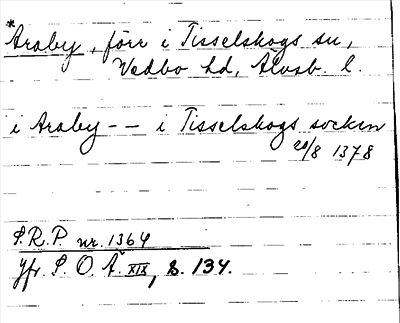 *Araby, förr i Tisselskogs sn,
Vedbo hd, Älvsb. l.
i Araby -- i Tisselskogs socken
20/8 1378
S.R.P. nr. 1364
Jfr. S. O. Ä. XIX, s. 134.